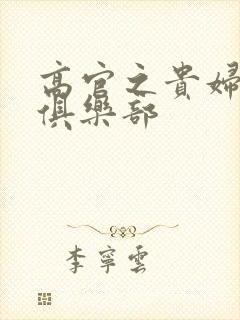 高官之貴婦
俱樂部
李寧雲